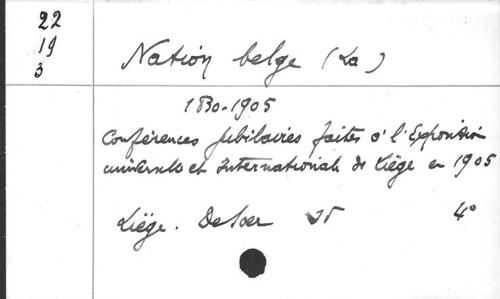 22
19
3
Nation belge (La)
1830-1905
Conférences jubilaires faites à l'Exposition
universelle et internationale de Liége en 1905
Liége. Desoer 4°